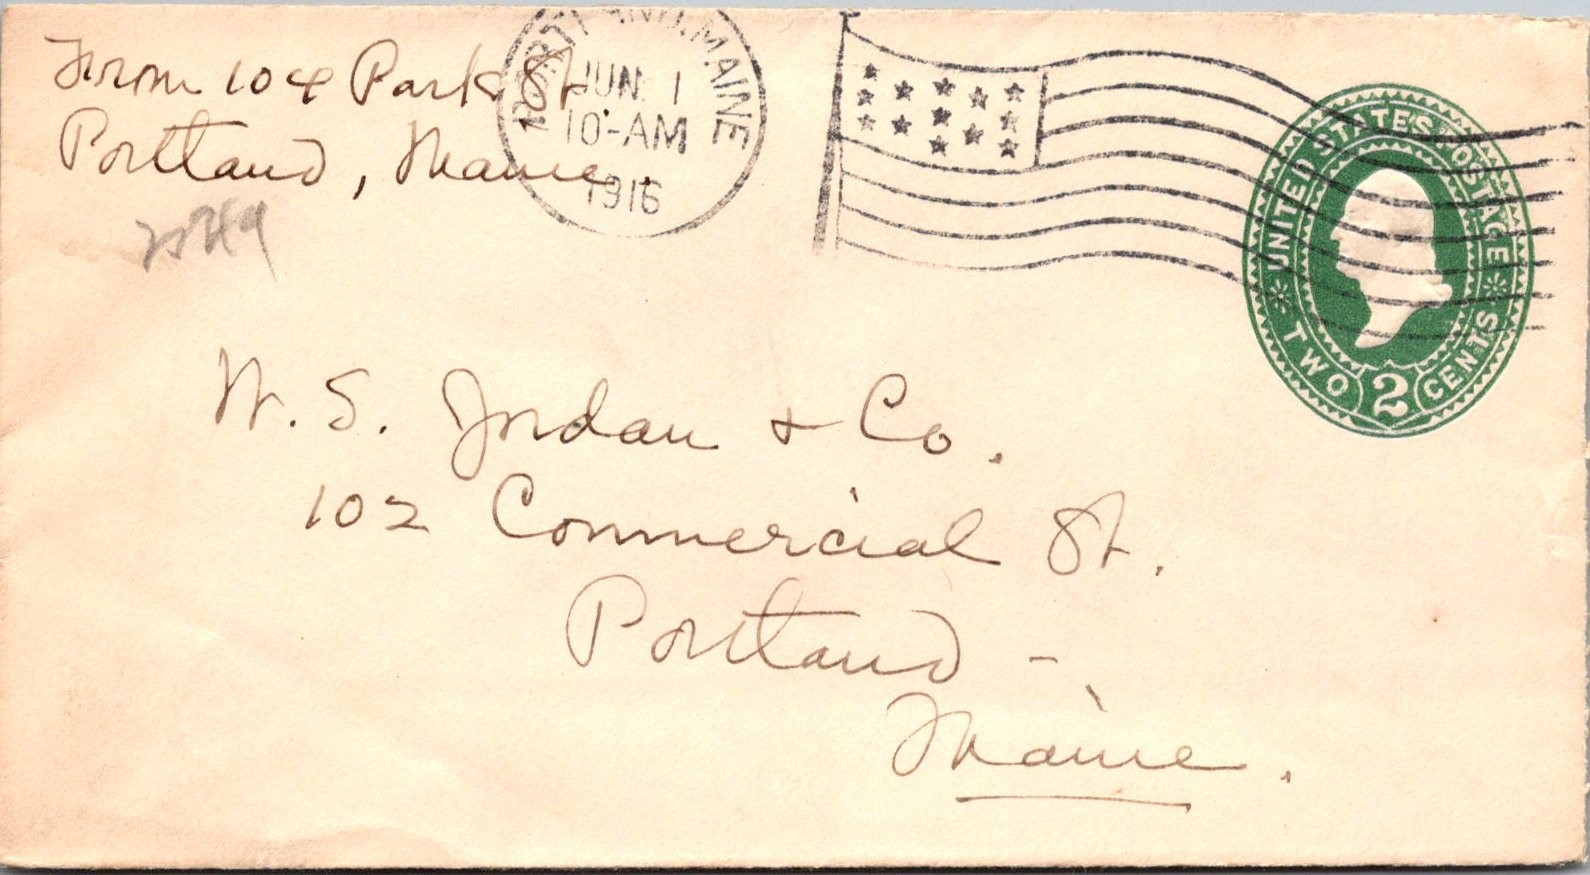 From 104 Park St.
Portland, Maine.
PORTLAND, MAINE
JUN 1
10-AM
1916
UNITED STATES POSTAGE
TWO 2 CENTS
W. S. Jordan & Co.
102 Commercial St.
Portland -
Maine.